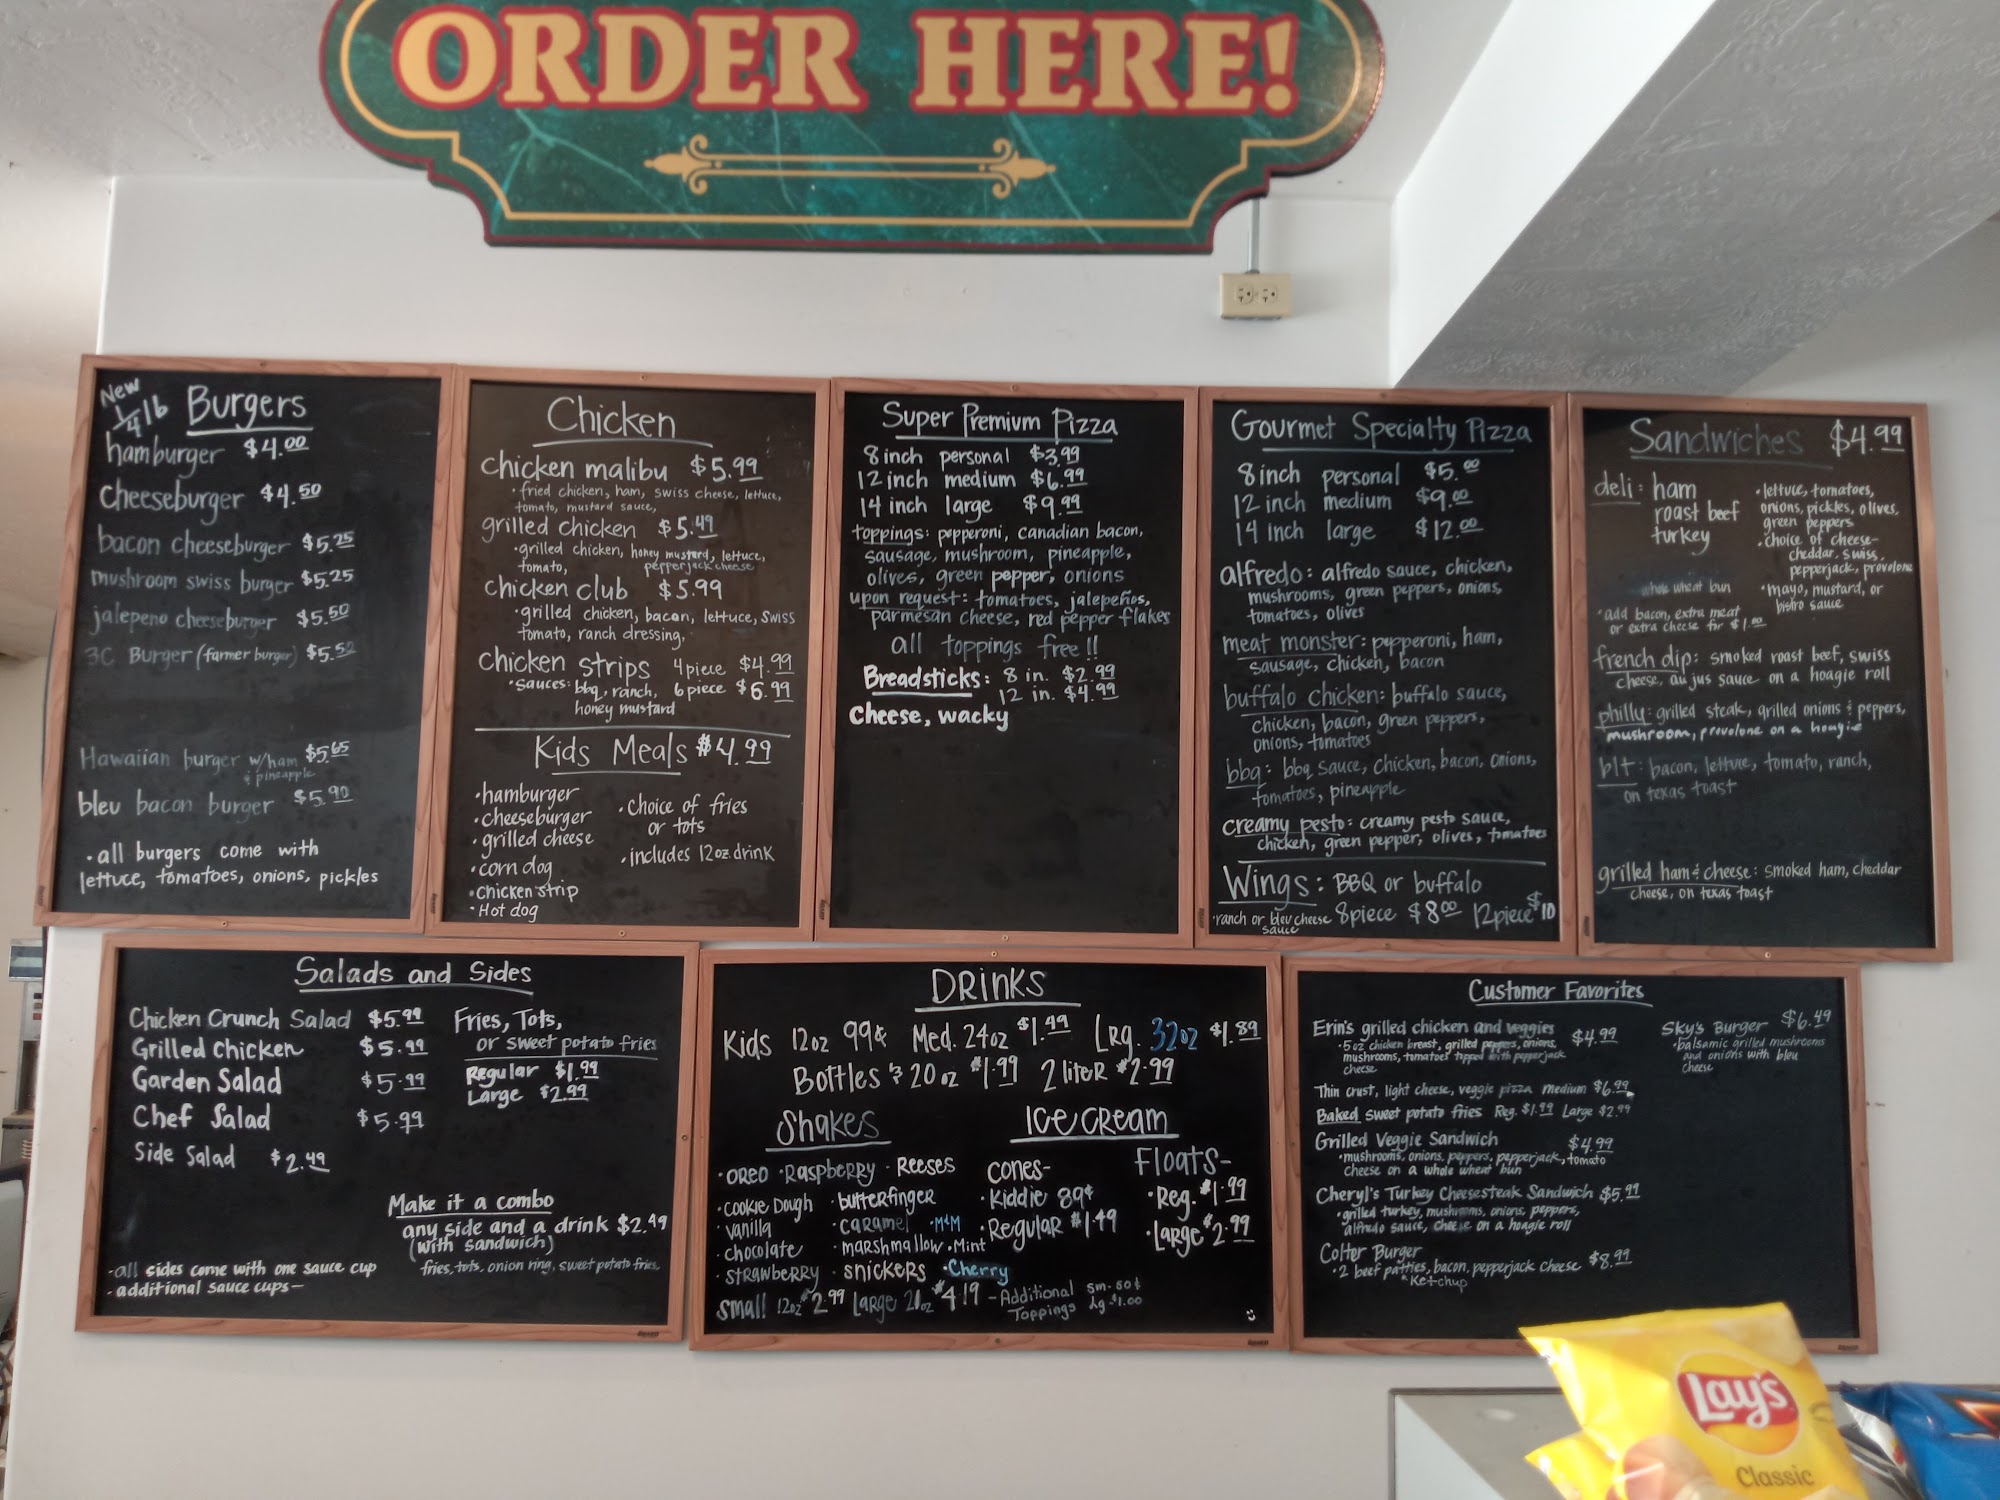 ORDER HERE!
New
1/4 lb Burgers
hamburger $4.00
cheeseburger $4.50
bacon cheeseburger $5.25
mushroom swiss burger $5.25
jalepeno cheeseburger $5.50
3C Burger (farmer burger) $5.50
Hawaiian burger w/ham $5.65
& pineapple
bleu bacon burger $5.90
• all burgers come with
lettuce, tomatoes, onions, pickles
Chicken
chicken malibu $5.99
• fried chicken, ham, swiss cheese, lettuce,
tomato, mustard sauce,
grilled chicken $5.49
• grilled chicken, honey mustard, lettuce,
tomato, pepperjack cheese
chicken club $5.99
• grilled chicken, bacon, lettuce, swiss
tomato, ranch dressing,
chicken strips 4 piece $4.99
• sauces: bbq, ranch, 6 piece $6.99
honey mustard
Kids Meals $4.99
• hamburger
• cheeseburger
• grilled cheese
• corn dog
• chicken strip
• Hot dog
• choice of fries
or tots
• includes 12oz. drink
Super Premium Pizza
8 inch personal $3.99
12 inch medium $6.99
14 inch large $9.99
toppings: pepperoni, canadian bacon,
sausage, mushroom, pineapple,
olives, green pepper, onions
upon request: tomatoes, jalepeños,
parmesan cheese, red pepper flakes
all toppings free!!
Breadsticks: 8 in. $2.99
12 in. $4.99
Cheese, wacky
Gourmet Specialty Pizza
8 inch personal $5.00
12 inch medium $9.00
14 inch large $12.00
alfredo: alfredo sauce, chicken,
mushrooms, green peppers, onions,
tomatoes, olives
meat monster: pepperoni, ham,
sausage, chicken, bacon
buffalo chicken: buffalo sauce,
chicken, bacon, green peppers,
onions, tomatoes
bbq: bbq sauce, chicken, bacon, onions,
tomatoes, pineapple
creamy pesto: creamy pesto sauce,
chicken, green pepper, olives, tomatoes
Wings: BBQ or buffalo
• ranch or bleu cheese 8piece $8.00 12piece $10
sauce
Sandwiches $4.99
deli: ham
roast beef
turkey
whole wheat bun
• add bacon, extra meat
or extra cheese for $1.00
• lettuce, tomatoes,
onions, pickles, olives,
green peppers
• choice of cheese-
cheddar, swiss,
pepperjack, provolone
• mayo, mustard, or
bistro sauce
french dip: smoked roast beef, swiss
cheese, au jus sauce on a hoagie roll
philly: grilled steak, grilled onions & peppers,
mushroom, provolone on a hoagie
blt: bacon, lettuce, tomato, ranch,
on texas toast
grilled ham & cheese: smoked ham, cheddar
cheese, on texas toast
Salads and Sides
Chicken Crunch Salad $5.99
Grilled Chicken $5.99
Garden Salad $5.99
Chef Salad $5.99
Side Salad $2.49
Fries, Tots,
or sweet potato fries
Regular $1.99
Large $2.99
Make it a combo
any side and a drink $2.49
(with sandwich)
fries, tots, onion ring, sweet potato fries.
-all sides come with one sauce cup
-additional sauce cups-
Drinks
Kids 12oz 99¢ Med. 24oz $1.49 Lrg. 32oz $1.89
Bottles 20oz $1.99 2 liter $2.99
Shakes
• oreo • Raspberry • Reeses
• cookie Dough • butterfinger
• vanilla • caramel • M&M
• chocolate • marshmallow • Mint
• strawberry • snickers • Cherry
small 12oz $2.99 Large 20oz $4.19 - Additional Toppings sm. 50¢ lg. $1.00
Ice Cream
Cones-
• Kiddie 89¢
• Regular $1.49
Floats-
• Reg. $1.99
• Large $2.99
Customer Favorites
Erin's grilled chicken and veggies $4.99
• 5 oz chicken breast, grilled peppers, onions,
mushrooms, tomatoes topped with pepperjack
cheese
Thin crust, light cheese, veggie pizza medium $6.99
Baked sweet potato fries Reg. $1.99 Large $2.99
Grilled Veggie Sandwich $4.99
• mushrooms, onions, peppers, pepperjack, tomato
cheese on a whole wheat bun
Cheryl's Turkey Cheesesteak Sandwich $5.99
• grilled turkey, mushrooms, onions, peppers,
alfredo sauce, cheese on a hoagie roll
Colter Burger
• 2 beef patties, bacon, pepperjack cheese $8.99
• Ketchup
Sky's Burger $6.49
• balsamic grilled mushrooms
and onions with bleu
cheese
Lay's
Classic